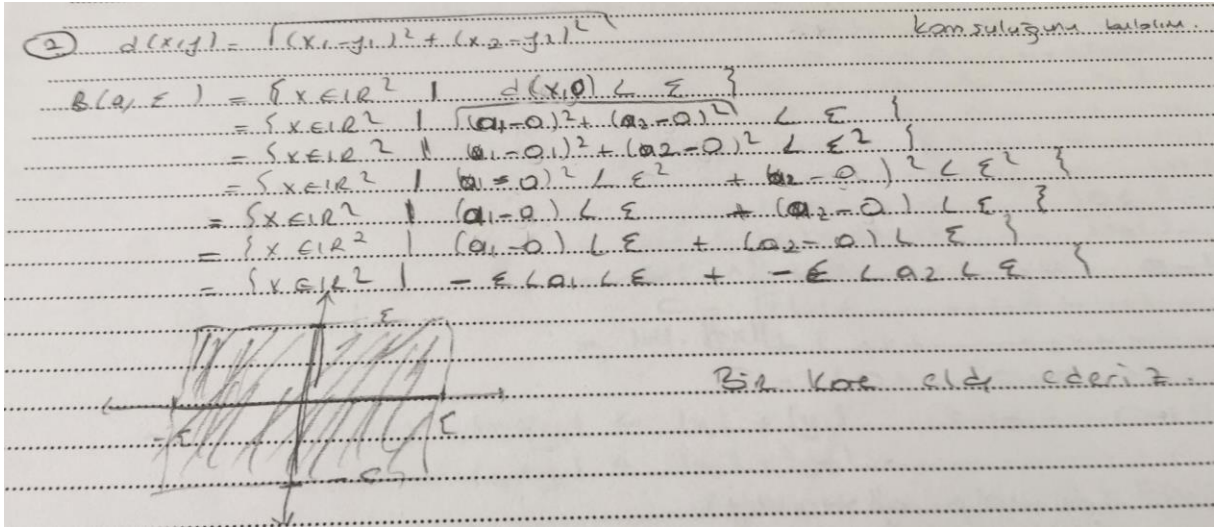 ② d(x,y) = √(x₁-y₁)² + (x₂-y₂)² komşuluğunu bulalım.
B(0, ε) = { x ∈ IR² | d(x,0) < ε }
= { x ∈ IR² | √(a₁-0)² + (a₂-0)² < ε }
= { x ∈ IR² | (a₁-0₁)² + (a₂-0)² < ε² }
= { x ∈ IR² | (a₁-0)² < ε² + (a₂-0)² < ε² }
= { x ∈ IR² | (a₁-0) < ε + (a₂-0) < ε }
= { x ∈ IR² | (a₁-0) < ε + (a₂-0) < ε }
= { x ∈ IR² | -ε < a₁ < ε + -ε < a₂ < ε }
ε
Bir kare elde ederiz.
-ε ε
-ε